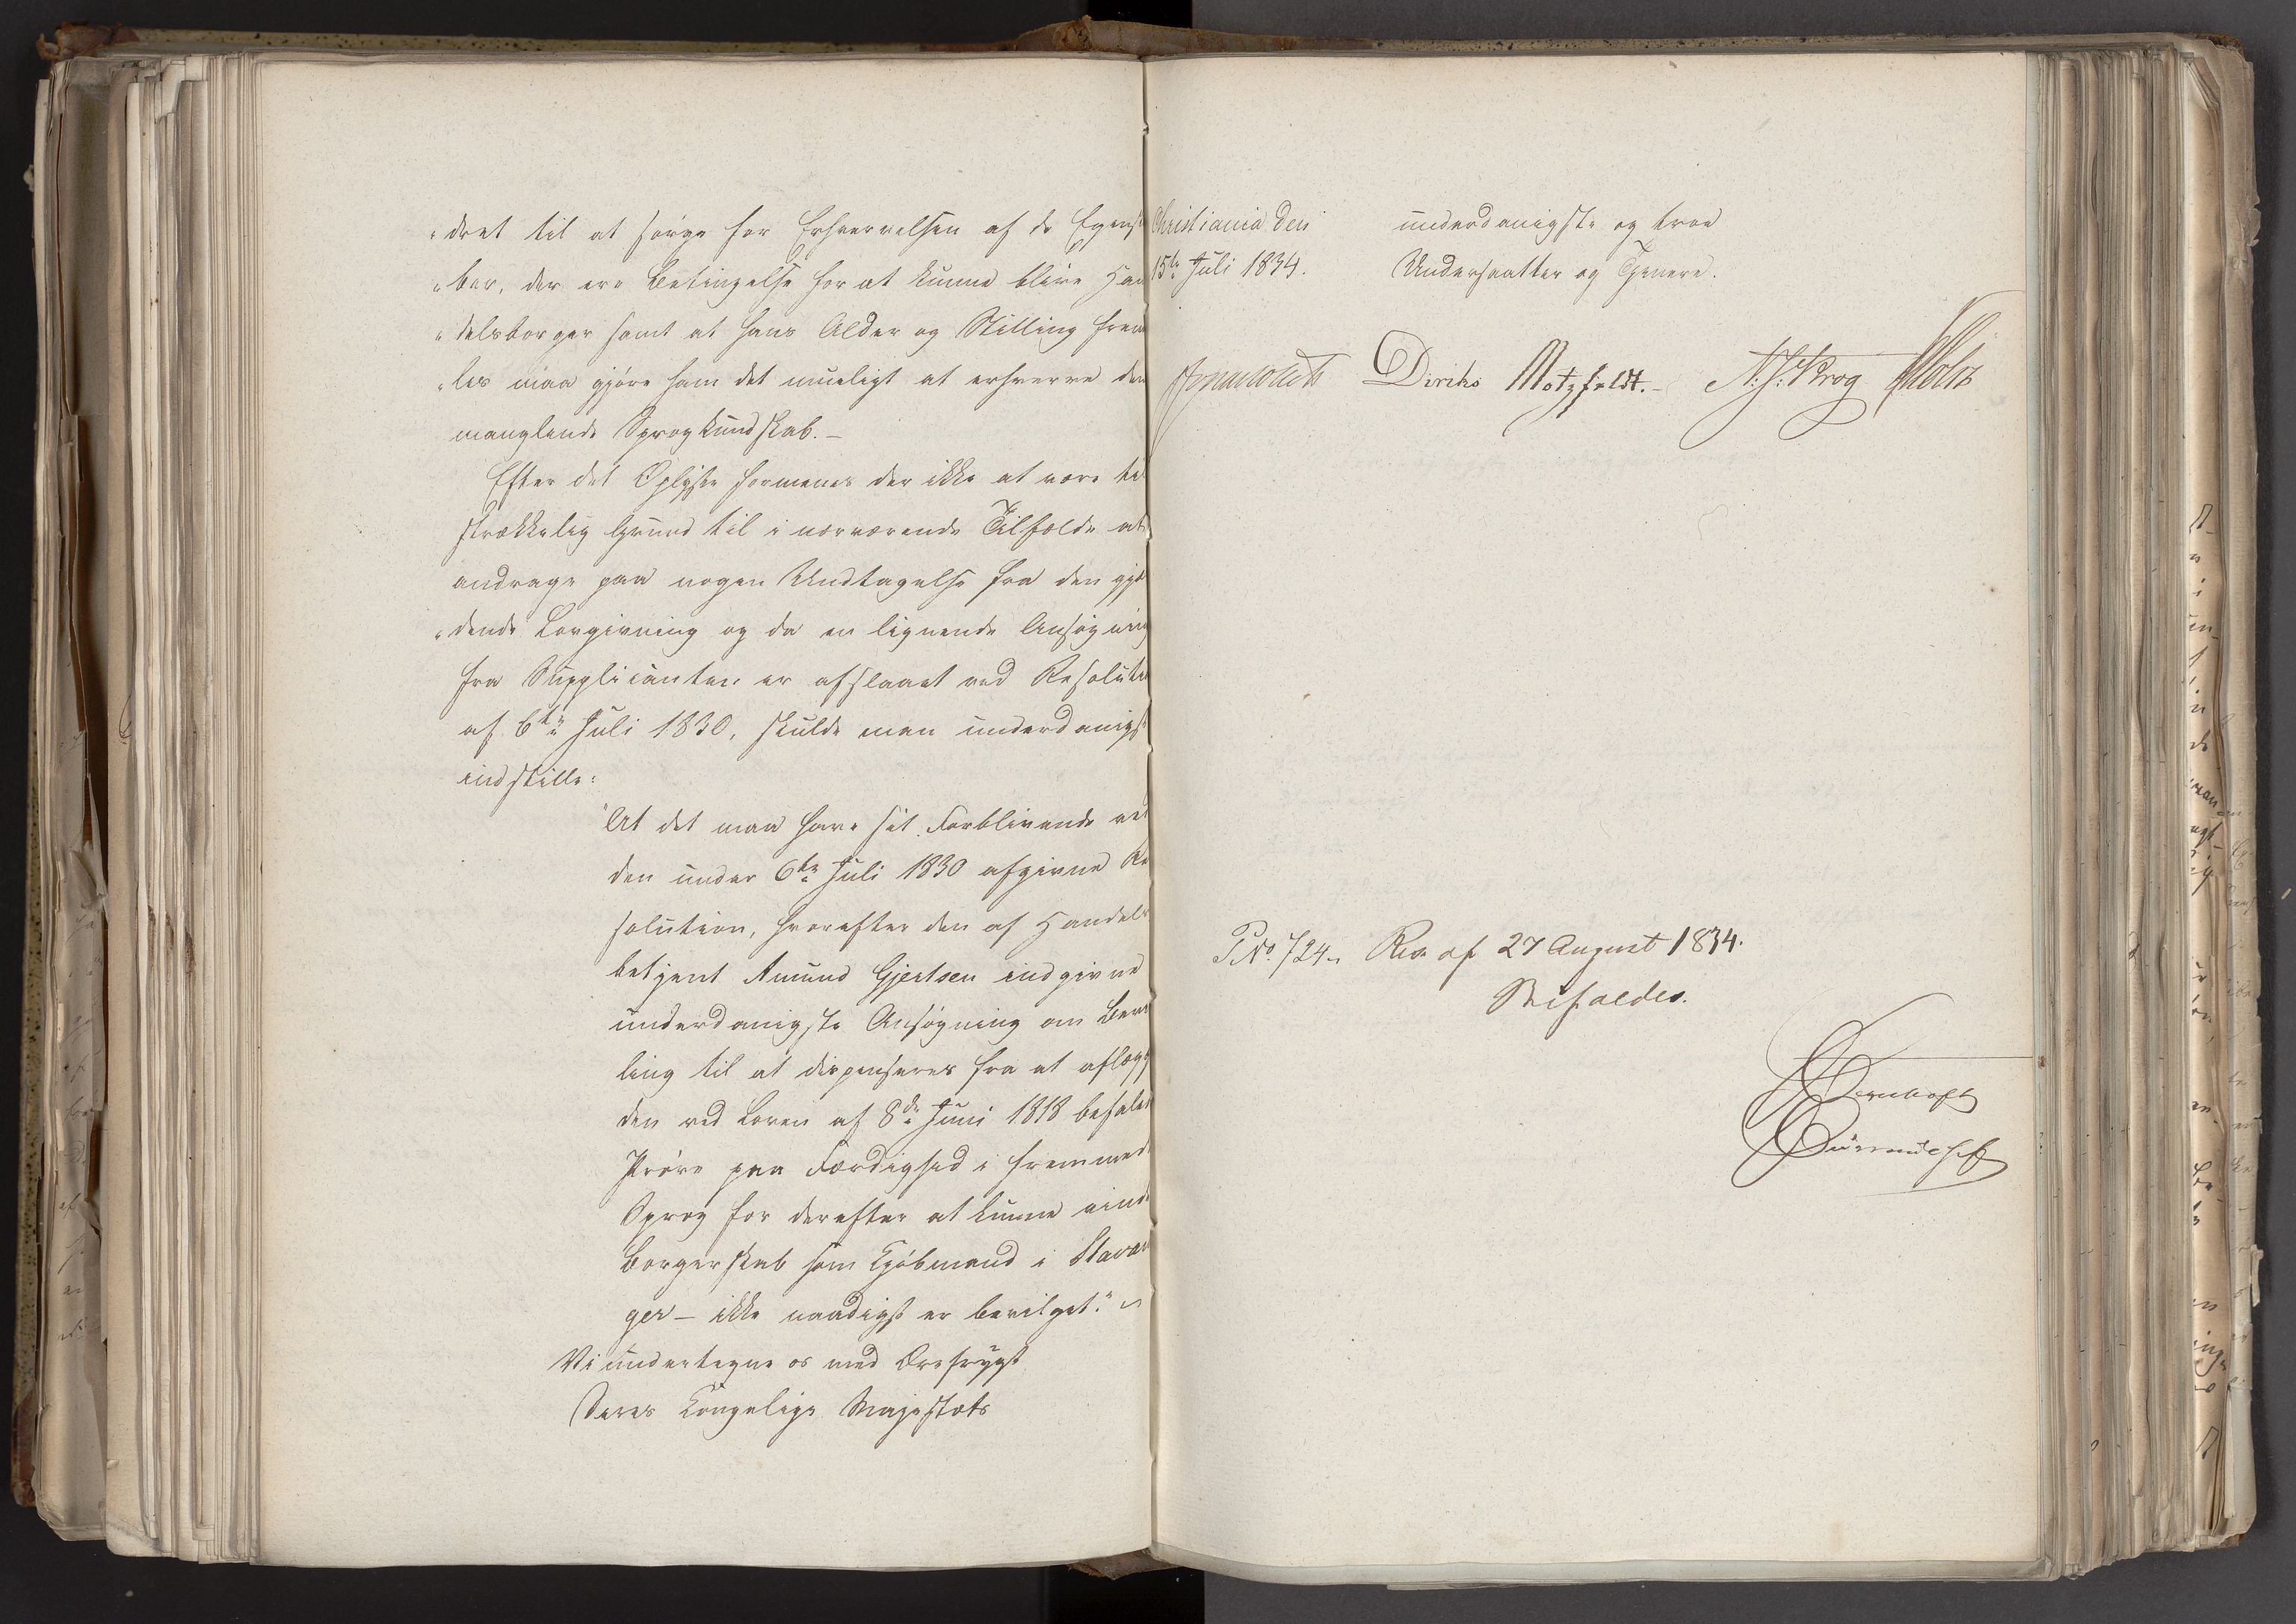 "dret til at sørge for Erhvervelsen af de Egensk
"ber, der ere Betingelse for at kunne blive Han
"delsborger samt at hans Alder og Stilling frem
"les maa gjøre ham det mueligt at erhverve den
manglende Sprogkundskab.—
Efter det Oplyste formenes der ikke at være til
strækkelig Grund til i nærværende Tilfælde at
andrage paa nogen Undtagelse fra den gjæl
"dende Lovgivning og da en lignende Ansøgning
fra Supplicanten er afslaaet ved Resolution
af 6te Juli 1830, skulde man underdanigst
indstille:
"At det maa have sit Forblivende ved
den under 6te Juli 1830 afgivne Re
solution, hvorefter den af Handels
betjent Amund Gjertsen indgivne
underdanigste Ansøgning om Bevil
ling til at dispenseres fra at aflægge
den ved Loven af 8de Juni 1818 befalede
Prøve paa Færdighed i fremmede
Sprog for derefter at kunne vinde
Borgerskab som Kjøbmand i Stavan
ger — ikke naadigst er bevilget."
Vi undertegne os med Ærefrygt
Deres Kongelige Majestæts
Christiania den
15de Juli 1834.
underdanigste og troe
Undersaatter og Tjenere.
Diriks Motzfeldt.— N. J. Krog Holst
P No. 724. Res. af 27 August 1834.
Bifaldes.